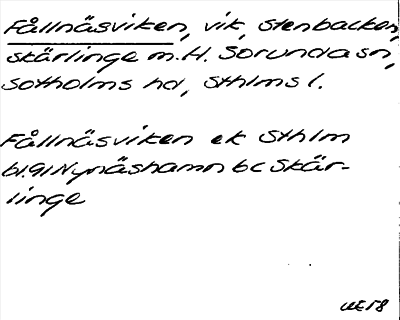 Fållnäsviken, vik, Stenbacken,
Skärlinge m.H. Sorunda sn,
Sotholms hd, Sthlms l.
Fållnäsviken ek Sthlm
bl.91 Nynäshamn bc Skär-
linge
UE58